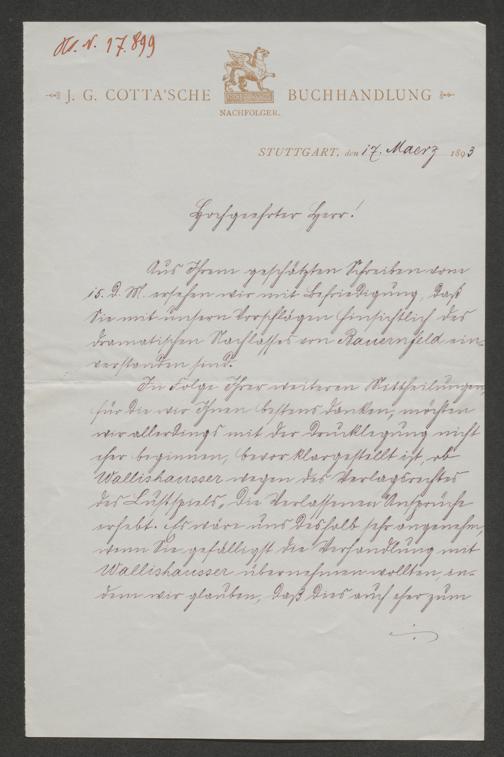 H. N. 17.899
J. G. COTTA'SCHE BUCHHANDLUNG
NACHFOLGER.
STUTTGART, den 17. Maerz 1893
Hochgeehrter Herr!
Aus Ihrem geschätzten Schreiben vom
15. d. M. ersehen wir mit Befriedigung, daß
Sie mit unsern Vorschlägen hinsichtlich des
dramatischen Nachlasses von Bauernfeld ein-
verstanden sind.
In Folge Ihrer weiteren Mittheilungen,
für die wir Ihnen bestens danken, möchten
wir allerdings mit der Drucklegung nicht
eher beginnen, bevor klargestellt ist, ob
Wallishausser wegen des Verlagsrechtes
des Lustspiels „Die Verlassenen“ Ansprüche
erhebt. Es wäre uns deshalb sehr angenehm,
wenn Sie gefälligst die Verhandlung mit
Wallishausser übernehmen wollten, in-
dem wir glauben, daß dies auch eher zum